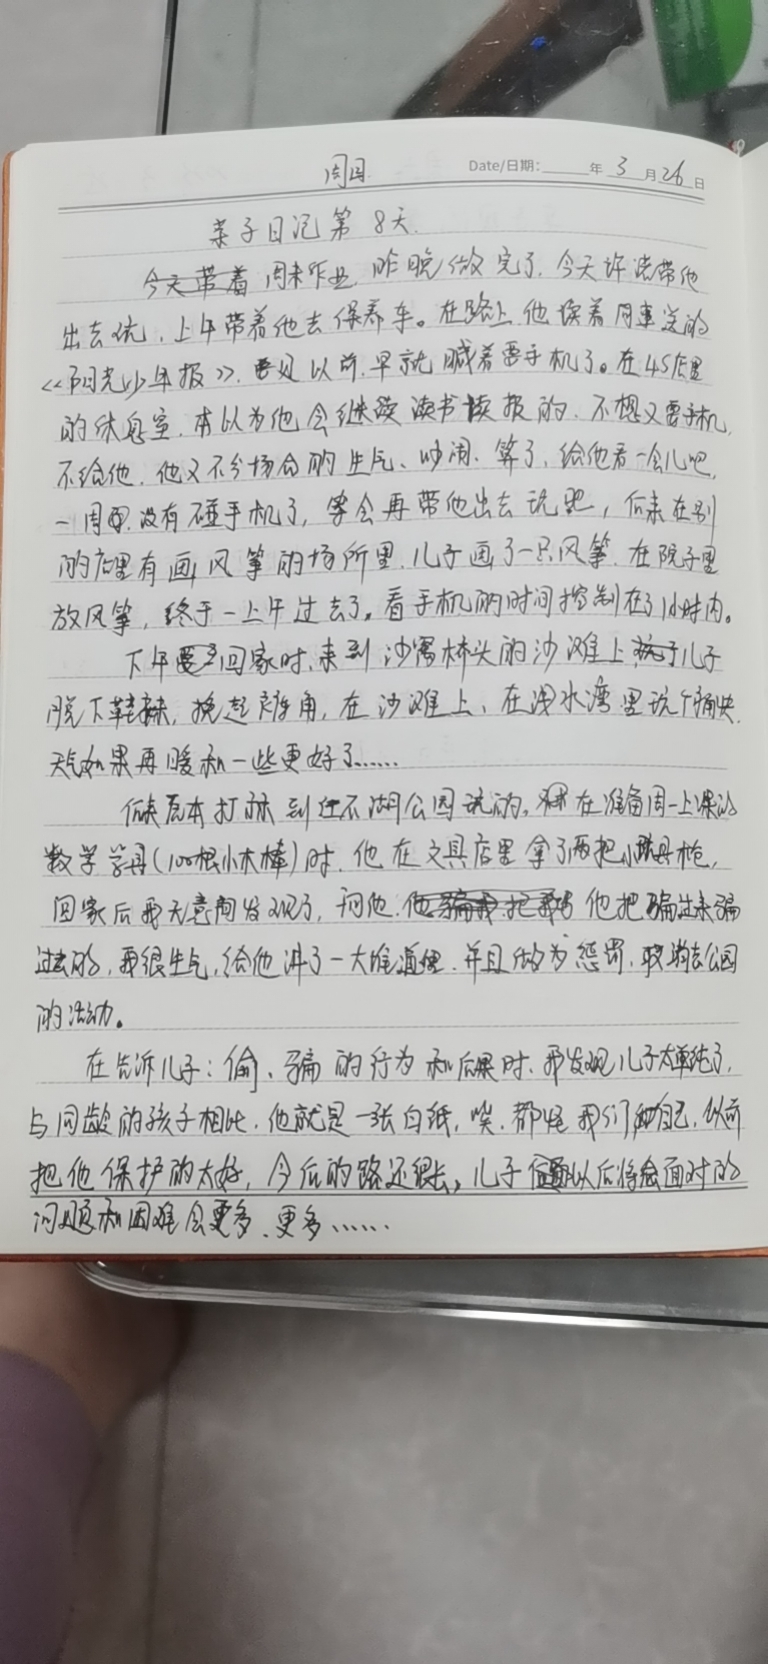 周日 Date/日期: 年 3 月 26 日
亲子日记第 8天.
今天带着 周末作业 昨晚做完了. 今天许诺带他
出去玩, 上午带着他去保养车。在路上他读着同事送的
《阳光少年报》. 要是以前, 早就喊着要手机了。在4S店里
的休息室, 本以为他会继续读书读报的, 不想又要手机,
不给他, 他又不分场合的生气、吵闹、算了, 给他看一会儿吧,
一周 没有碰手机了, 等会再带他出去玩吧, 后来在别
的店里有画风筝的场所里, 儿子画了一只风筝. 在院子里
放风筝, 终于一上午过去了。看手机的时间控制在了1小时内。
下午 回家时, 来到 沙窝林头的沙滩上 儿子
脱下鞋袜, 挽起裤角, 在沙滩上、在浅水湾里玩个痛快.
天气如果再暖和一些更好了......
后来原本打算到 湖公园玩的, 在准备周一上课的
数学学具(100根小木棒)时, 他在文具店里拿了两把小 枪,
回家后我无意间发现了, 问他, 他把骗过来骗
过去的, 我很生气, 给他讲了一大堆道理. 并且做为惩罚, 取消去公园
的活动。
在告诉儿子: 偷、骗的行为和后果时, 我发现儿子太单纯了,
与同龄的孩子相比, 他就是一张白纸, 唉, 都怪我们 自己, 以前
把他保护的太好, 今后的路还很长, 儿子 以后将会面对的
问题和困难会更多、更多......